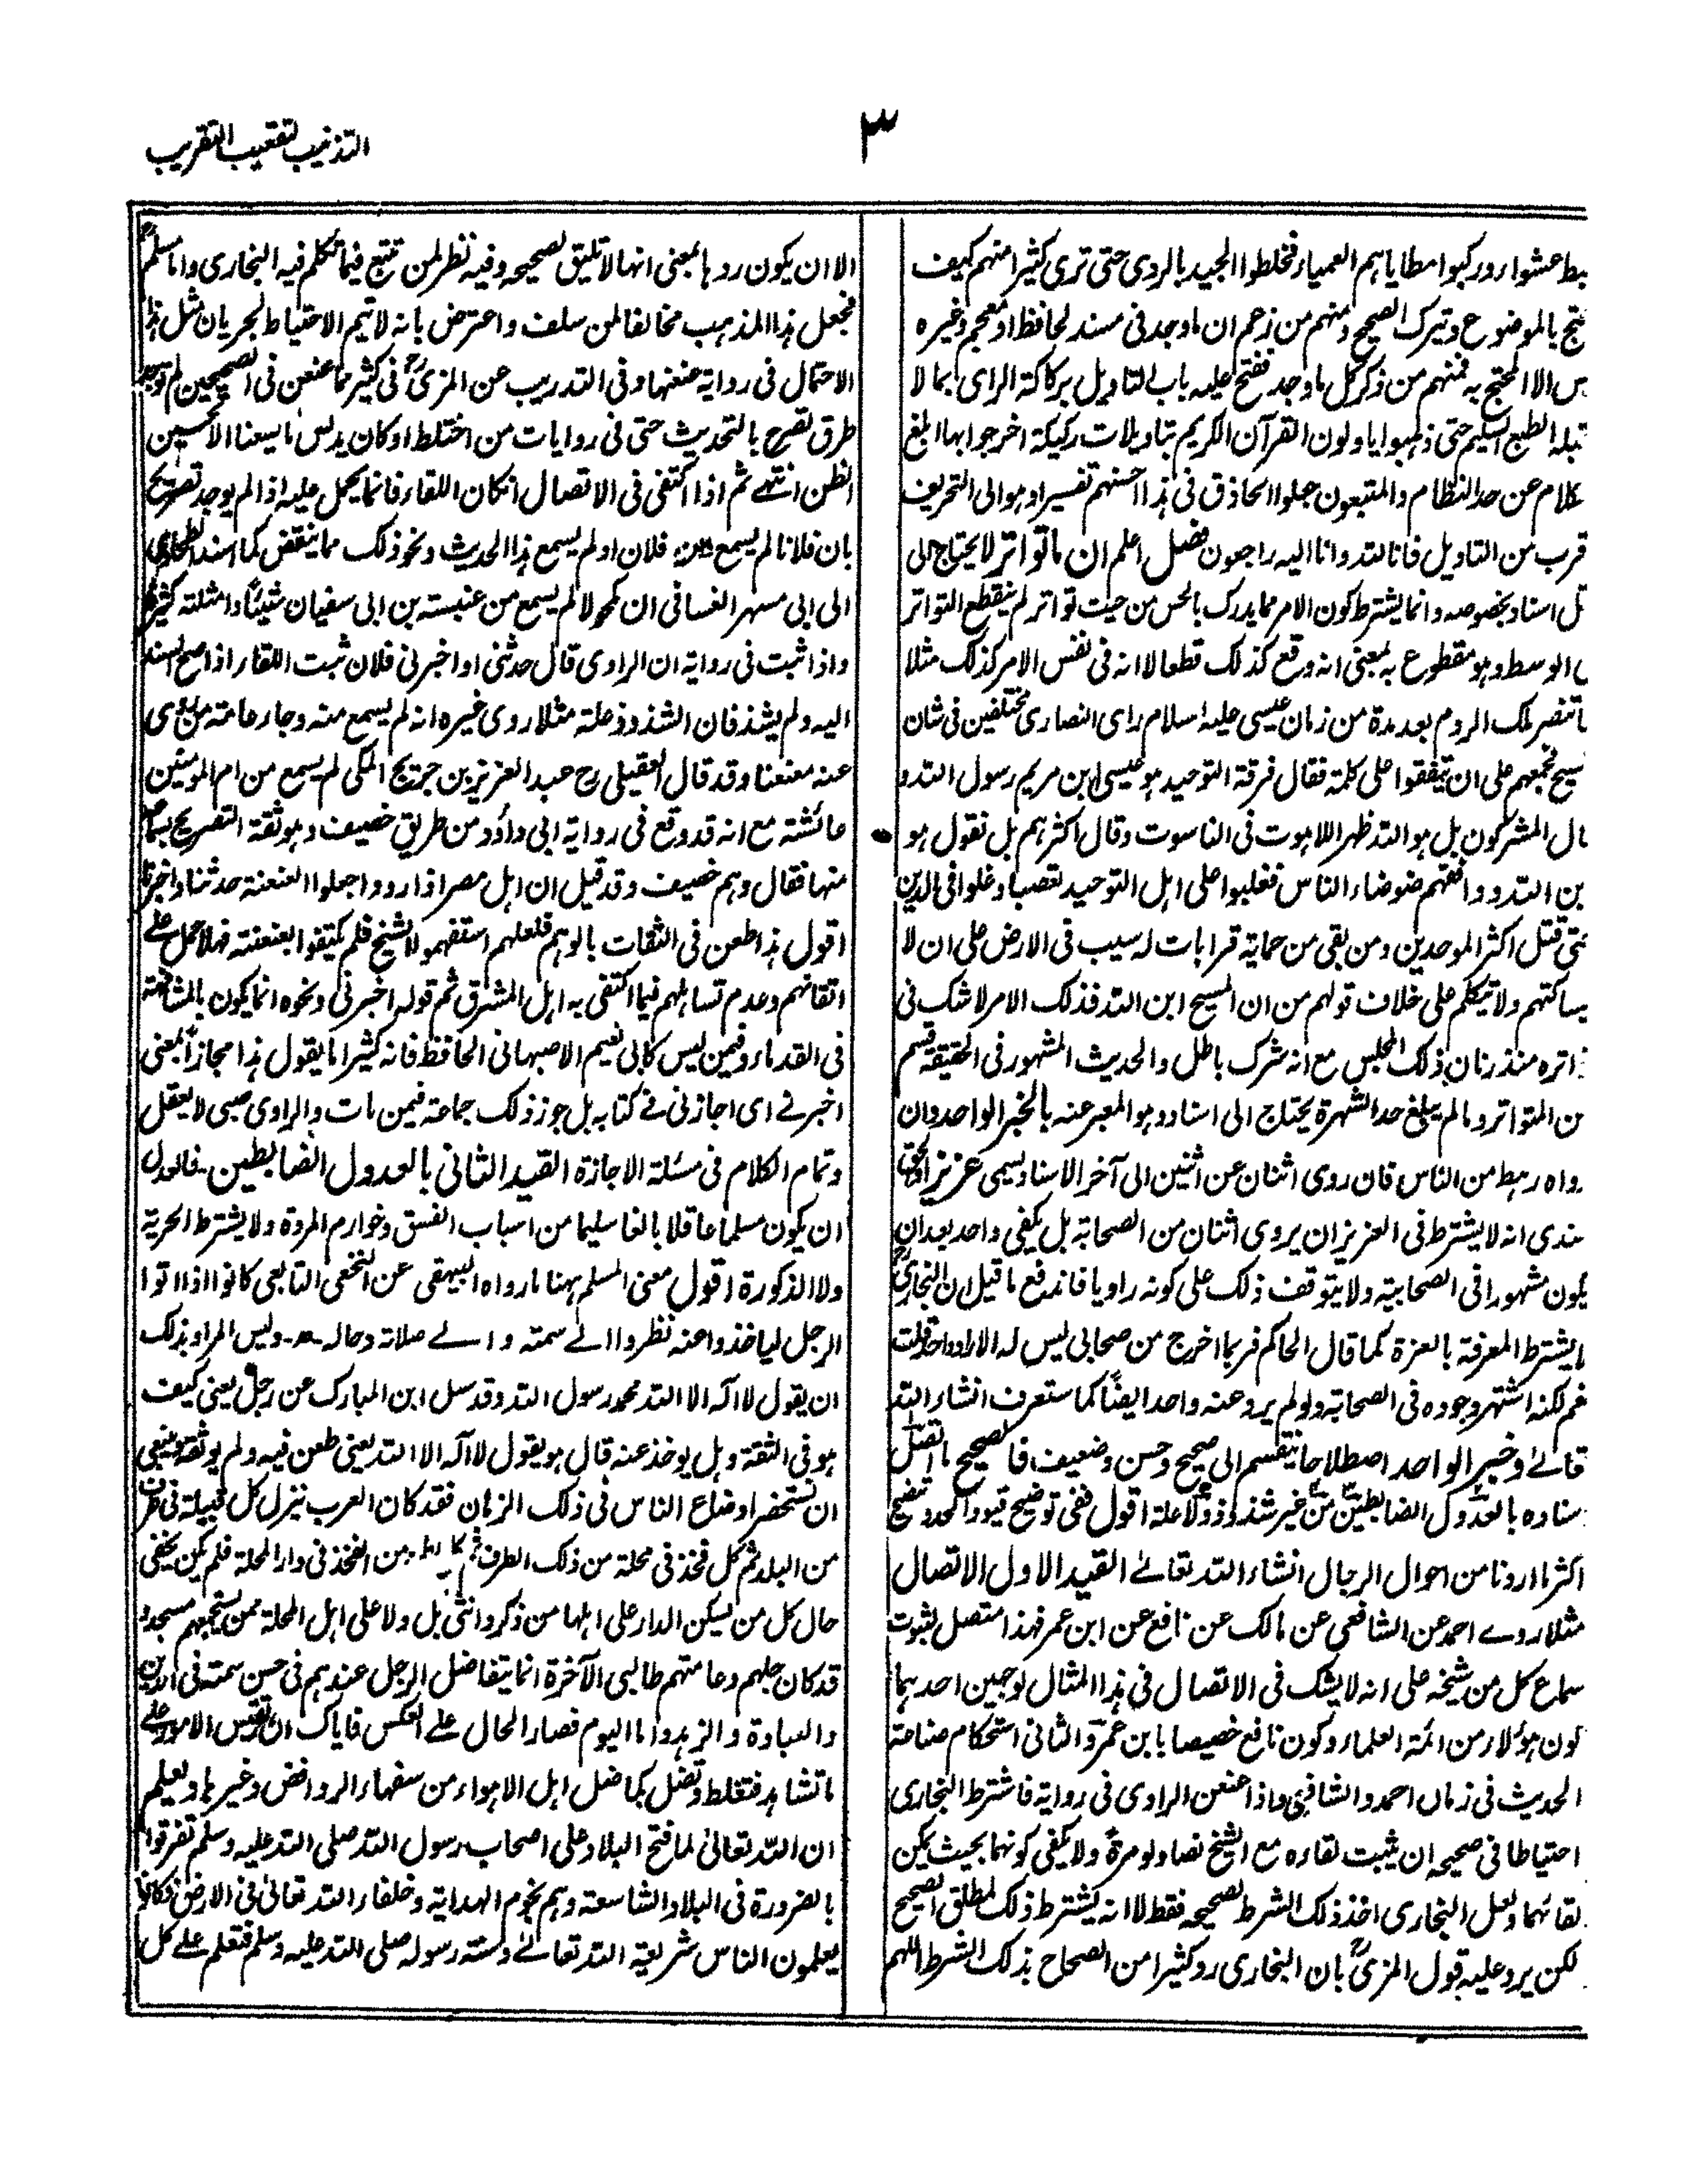 ٣
التذنيب لتعقيب التقريب
بط عشواء وركبوا مطاياهم العمياء فخلطوا الجيد بالردى حتى ترى كثيرا منهم كيف
تج بالموضوع ويترك الصحيح ومنهم من زعم ان ما وجد فى مسند لحافظ او معجم وغيره
س الا المحتج به فمنهم من ذكر كل ما وجد ففتح عليه باب التاويل بركاكة الراى بما لا
تبله الطبع السليم حتى ذهبوا ياولون القرآن الكريم بتاويلات ركيكة اخرجوا بها ابلغ
كلام عن حد النظام والمتبعون جعلوا الحاذق فى هذا احسنهم تفسيرا وهو الى التحريف
قرب من التاويل فانا لله وانا اليه راجعون فصل اعلم ان ما تواتر لا يحتاج الى
قل اسناد بخصوصه وانما يشترط كون الامر مما يدرك بالحس من حيث تواتر لم ينقطع التواتر
ى الوسط وهو مقطوع به بمعنى انه وقع كذلك قطعا لا انه فى نفس الامر كذلك مثلا
ا تنصر ملك الروم بعد مدة من زمان عيسى عليه السلام راى النصارى مختلفين فى شان
سيح فجمعهم على ان يتفقوا على كلمة فقال فرقة التوحيد هو عيسى ابن مريم رسول الله و
ال المشركون بل هو الله ظهر اللاهوت فى الناسوت وقال اكثرهم بل نقول هو
بن الله ووافقهم ضوضاء الناس فغلبوا على اهل التوحيد تعصبا وغلوا فى الدين
حتى قتل اكثر الموحدين ومن بقى من حماية قرابات له سيب فى الارض على ان لا
يساكنهم ولا يتكلم على خلاف قولهم من ان المسيح ابن الله فذلك الامر لا شك فى
اتره منذ زمان ذلك المجلس مع انه شرك باطل والحديث المشهور فى الحقيقة قسم
من المتواتر وما لم يبلغ حد الشهرة يحتاج الى اسناد وهو المعبر عنه بالخبر الواحد وان
رواه رهط من الناس فان روى اثنان عن اثنين الى آخر الاسناد يسمى عزيزا والحق
عندى انه لا يشترط فى العزيز ان يروى اثنان من الصحابة بل يكفى واحد بعد ان
يكون مشهورا فى الصحابية ولا يتوقف ذلك على كونه راويا فاندفع ما قيل ان البخارى
ما يشترط المعرفة بالعزة كما قال الحاكم فربما اخرج من صحابى ليس له الا راو واحد قلت
نعم لكنه اشتهر وجوده فى الصحابة ولو لم يرو عنه واحد ايضا كما ستعرف انشاء الله
تعالے وخبر الواحد اصطلاحا ينقسم الى صحيح وحسن وضعيف فالصحيح ما اتصل
سناده بالعدول الضابطين من غير شذوذ ولا علة اقول ففى توضيح قيود الحد توضيح
اكثر ما اردنا من احوال الرجال انشاء الله تعالے القيد الاول الاتصال
مثلا روے احمد عن الشافعى عن مالك عن نافع عن ابن عمر فهذا متصل لثبوت
سماع كل من شيخه على انه لا يشك فى الاتصال فى هذا المثال لوجهين احدهما
كون هؤلاء من ائمة العلماء وكون نافع خصيصا بابن عمر والثانى استحكام صناعة
الحديث فى زمان احمد والشافعى واذا عنعن الراوى فى رواية فاشترط البخارى
احتياطا فى صحيحه ان يثبت لقاءه مع الشيخ نصا ولو مرة ولا يكفى كونهما بحيث يمكن
لقائهما ولعل البخارى اخذ ذلك الشرط لصحيحه فقط لا انه يشترط ذلك لمطلق الصحيح
لكن يرد عليه قول المزى بان البخارى رد كثيرا من الصحاح بذلك الشرط اللهم
الا ان يكون ردها بمعنى انها لا تليق لصحيحه وفيه نظر لمن تتبع فيما تكلم فيه البخارى واما مسلم
فجعل هذا المذهب مخالفا لمن سلف واعترض بانه لا يتم الاحتياط لجريان مثل هذا
الاحتمال فى رواية عنعنها وفى التدريب عن المزى فى كثير مما عنعن فى الصحيحين لم توجد
طرق تصرح بالتحديث حتى فى روايات من اختلط او كان يدلس ما يسعنا الا تحسين
الظن انتهے ثم اذا اكتفى فى الاتصال امكان اللقاء فانما يحمل عليه اذا لم يوجد تصريح
بان فلانا لم يسمع من فلان او لم يسمع هذا الحديث ونحو ذلك مما ينقض كما اسند الطحاوى
الى ابى مسهر الغسانى ان مكحولا لم يسمع من عنبسة بن ابى سفيان شيئا وامثلته كثيرة
واذا ثبت فى رواية ان الراوى قال حدثنى او اخبرنى فلان ثبت اللقاء اذا صح السند
اليه ولم يشذ فان الشذوذ علة مثلا روى غيره انه لم يسمع منه وجاء عامة من روى
عنه معنعنا وقد قال العقيلى رح عبد العزيز بن جريج المكى لم يسمع من ام المومنين
عائشة مع انه قد وقع فى رواية ابى داؤد من طريق خصيف وهو ثقة التصريح بسماعه
منها فقال وهم خصيف وقد قيل ان اهل مصر اذا رووا جعلوا العنعنة حدثنا واخبرنا
اقول هذا طعن فى الثقات بالوهم فلعلهم استفهموا الشيخ فلم يكتفوا بعنعنته فهلا حمل علے
اتقانهم وعدم تساهلهم فيما اكتفى به اهل المشرق ثم قوله اخبرنى ونحوه انما يكون بالمشافهة
فى القدماء وفيمن ليس كابى نعيم الاصبهانى الحافظ فانه كثيرا ما يقول هذا مجازا بمعنى
اخبرنے اى اجازنى فے كتابه بل جوز ذلك جماعة فيمن مات والراوى صبى لا يعقل
وتمام الكلام فى مسئلة الاجازة القيد الثانى بالعدول الضابطين۔ فالعدل
ان يكون مسلما عاقلا بالغا سليما من اسباب الفسق وخوارم المروة ولا يشترط الحرية
ولا الذكورة اقول معنى المسلم ههنا ما رواه البيهقى عن النخعى التابعى كانوا اذا اتوا
الرجل لياخذوا عنه نظروا الے سمته والے صلاته وحاله وليس المراد بذلك
ان يقول لا اله الا الله محمد رسول الله وقد سئل ابن المبارك عن رجل يعنى كيف
هو فى الثقة وهل يوخذ عنه قال هو يقول لا اله الا الله يعنى طعن فيه ولم يوثقه وينبغى
ان تستحضر اوضاع الناس فى ذلك الزمان فقد كان العرب ينزل كل قبيلة فى طرف
من البلد ثم كل فخذ فى محلة من ذلك الطرف ثم كل من الفخذ فى دار المحلة فلم يكن يخفى
حال كل من يسكن الدار على اهلها من ذكر وانثى بل ولا على اهل المحلة ممن يجمعهم مسجد و
قد كان جلهم وعامتهم طالبى الآخرة انما يتفاضل الرجل عندهم فى حسن سمته فى الدين
والعبادة والزهد واما اليوم فصار الحال علے العكس فاياك ان تقيس الامور علے
ما تشاهد فتغلط وتضل كما ضل اهل الاهواء من سفهاء الروافض وغيرها وليعلم
ان الله تعالى لما فتح البلاد على اصحاب رسول الله صلى الله عليه وسلم تفرقوا
بالضرورة فى البلاد الشاسعة وهم نجوم الهداية وخلفاء الله تعالى فى الارض فكانوا
يعلمون الناس شريعة الله تعالے وسنة رسوله صلى الله عليه وسلم فتعلم علے كل